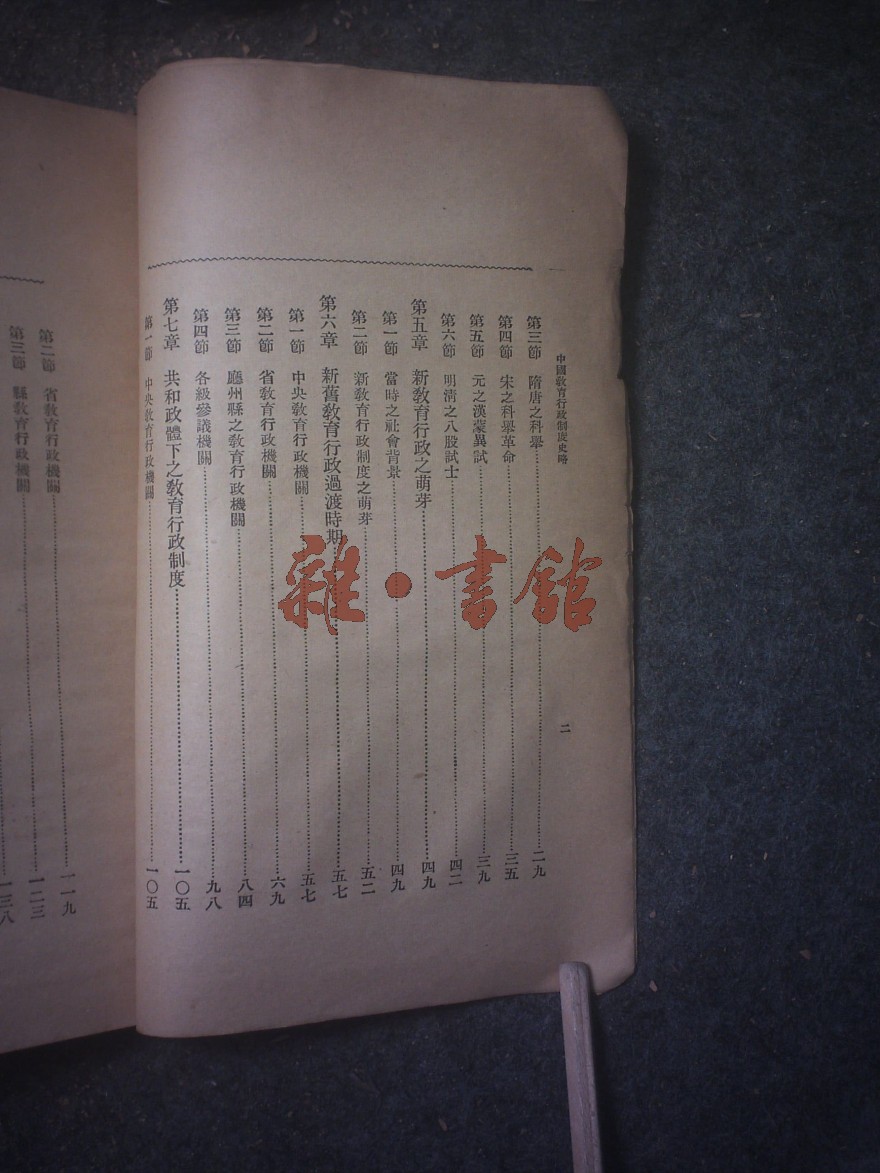 中國教育行政制度史略
二
第三節　隋唐之科舉……二九
第四節　宋之科舉革命……三五
第五節　元之漢蒙異試……三九
第六節　明清之八股試士……四二
第五章　新教育行政之萌芽……四九
第一節　當時之社會背景……四九
第二節　新教育行政制度之萌芽……五二
第六章　新舊教育行政過渡時期……五七
第一節　中央教育行政機關……五七
第二節　省教育行政機關……六九
第三節　廳州縣之教育行政機關……八四
第四節　各級參議機關……九八
第七章　共和政體下之教育行政制度……一〇五
第一節　中央教育行政機關……一〇五
第二節　省教育行政機關……一一九
第三節　縣教育行政機關……一二三
一三八
雜·書館